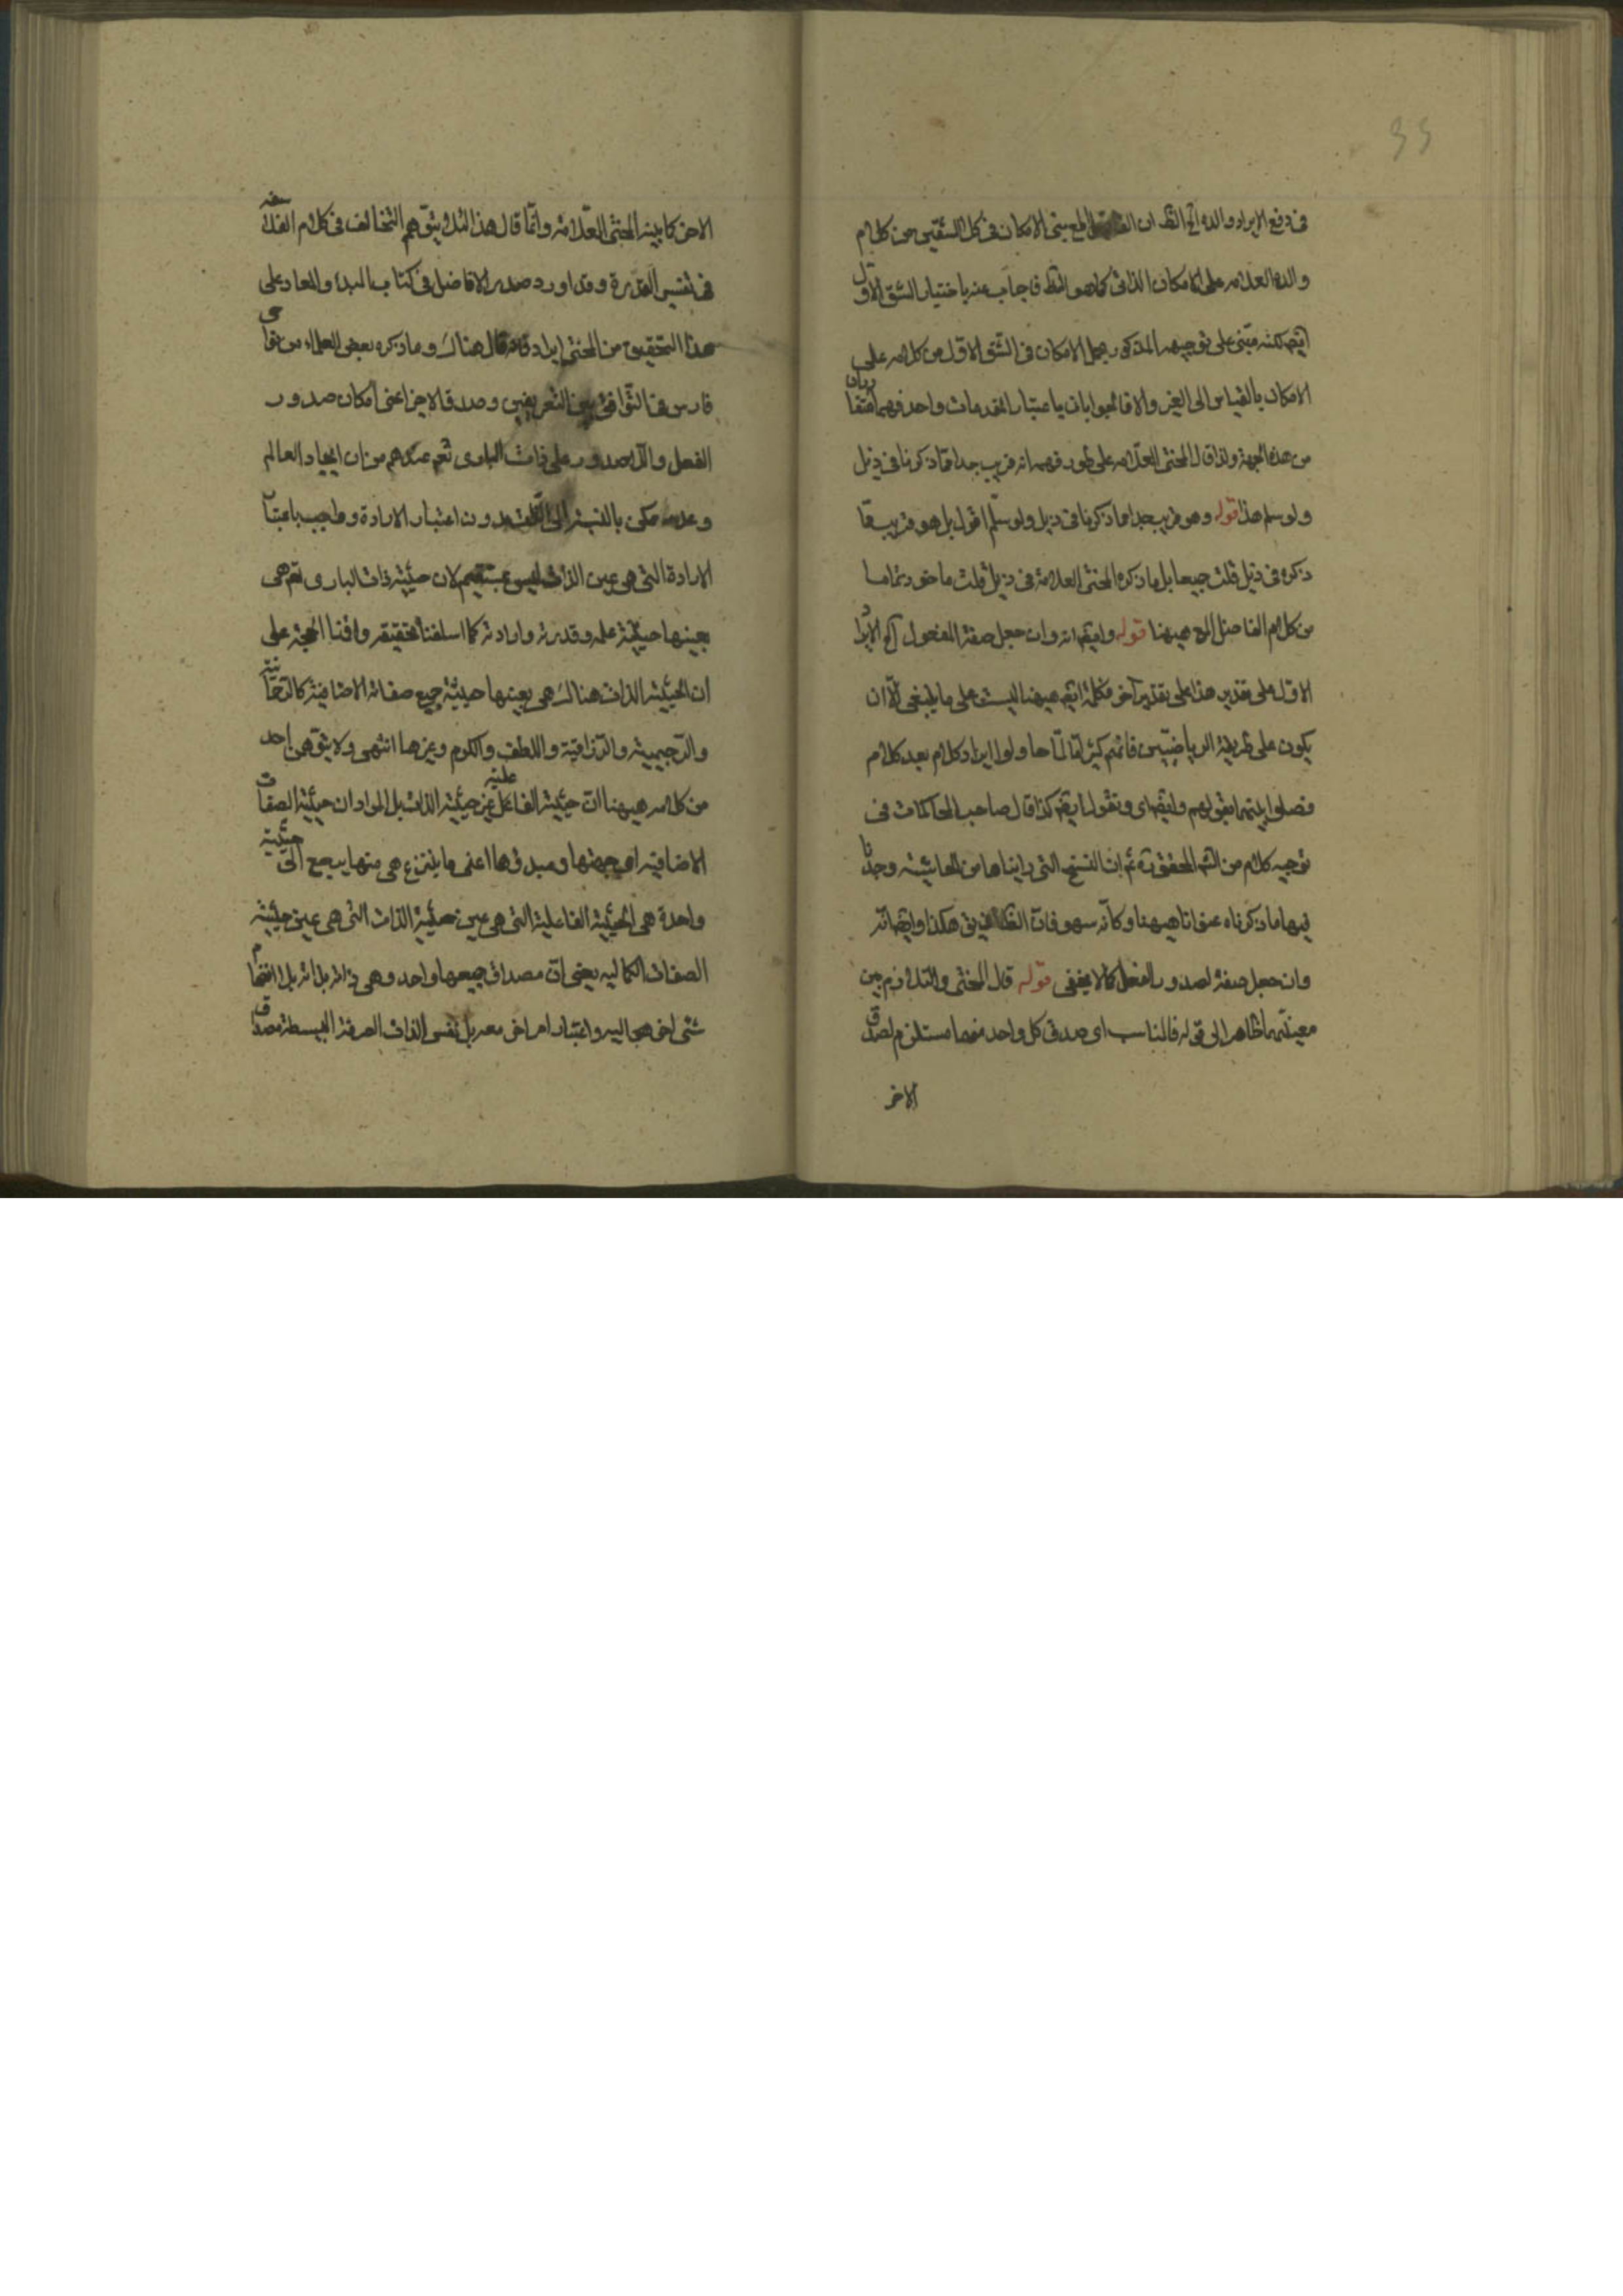 35
فى دفع الايراد والده الخ الظ ان المع بنى الامكان فى كلا الشقين من كلام
والده العلامه على الامكان الذاتى كما هو الظ فاجاب عنه باختيار الشق الاول
ايضا لكنه مبنى على توجيهه المذكور بحمل الامكان فى الشق الاول من كلامه على
الامكان بالقياس الى الغير والا فالجوابان باعتبار المقدمات واحد فهما متقاربان
من هذه الجهة ولذا قال المحشى العلامه على طور فهمه انه قريب جدا مما ذكرنا فى ذيل
ولو سلم هذا قوله وهو قريب جدا مما ذكرنا فى ذيل ولو سلم اقول بل هو قريب مما
ذكره فى ذيل قلت جميعا بل ما ذكره المحشى العلامة فى ذيل قلت ماخوذ تماما
من كلام الفاضل المع هيهنا قوله وايضا انه وان جعل صفة المفعول آه الايراد
الاول على تقدير هذا على تقدير آخر فكلمة ايضا هيهنا ليست على ما ينبغى الا ان
يكون على طريقة الرياضيين فانهم كثيرا ما لما حاولوا ايراد كلام بعد كلام
فصلوا بينهما بقولهم وايضا اى ونقول ايضا كذا قال صاحب المحاكمات فى
توجيه كلام من الشه المحقق ره ثم ان النسخ التى رايناها من الحاشية وجدنا
فيها ما ذكرناه عنوانا هيهنا وكأنه سهو فان هكذا وايضا انه
وان جعل صفة لصدور الفعل كما لا يخفى قوله قال المحشى والتلازم بين
معينيهما ظاهر الى قوله فالمناسب اى صدق كل واحد منهما مستلزم لصدق
الاخر
الاخر كما بينه المحشى العلامة وانما قال هذا لئلا يتوهم التخالف فى كلام الفلاسفه
فى تفسير القدرة وقد اورد صدر الافاضل فى كتاب المبدء والمعاد على
هذا التحقيق من المحشى ايراد فانه قال هناك وما ذكره بعض العلماء من نواحى
فارس من التوافق بين التعريفين وصدقا لاجزاء عنى امكان صدور
الفعل واللاصدور على ذات البارى تعم عندهم من ان ايجاد العالم
وعدمه ممكن بالنسبة الى الذات بدون اعتبار الارادة وواجب باعتبار
الارادة التى هى عين الذات ليس بمستقيم لان حيثية ذات البارى تعم هى
بعينها حيثية علمه وقدرته وارادته كما اسلفنا تحقيقه واقمنا الحجة على
ان الحيثية الذات هناك هى بعينها حيثية جميع صفاته الاضافية كالرحمانية
والرحيمية والرزاقية واللطف والكرم وغيرها انتهى ولا يتوهمن احد
من كلامه هيهنا ان حيثية الفاعلية عين حيثية الذات بل المراد ان حيثية الصفات
الاضافية اى جهتها ومبدؤها اعنى ما ينتزع هى منها يرجع الى حيثية
واحدة هى الحيثية الفاعلية التى هى عين حيثية الذات التى هى عين حيثية
الصفات الكماليه يعنى ان مصداق جميعها واحد وهى ذاته بذاته بلا انضمام
شئ اخر معها اليه واعتبار امر اخر معه بل نفس الذات الصرفة البسيطة مصداق